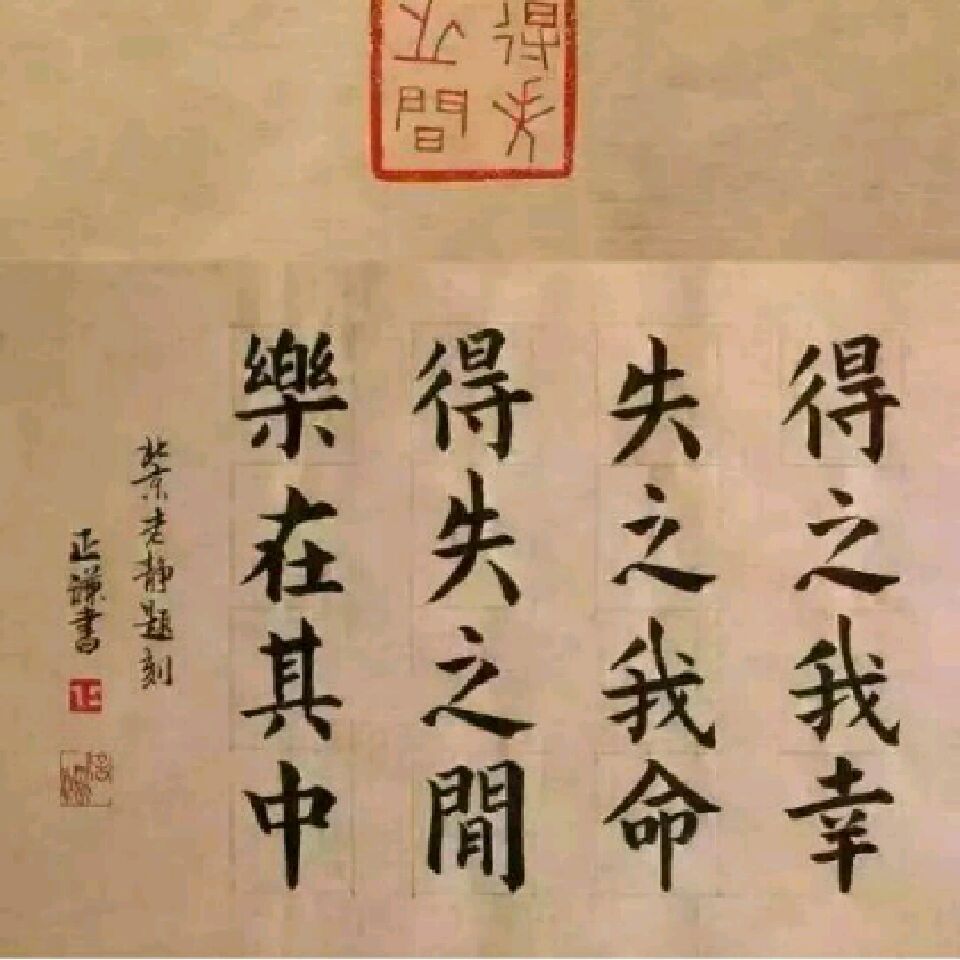 得失
之間
得之我幸
失之我命
得失之間
樂在其中
北京 静題刻
正謙書
正